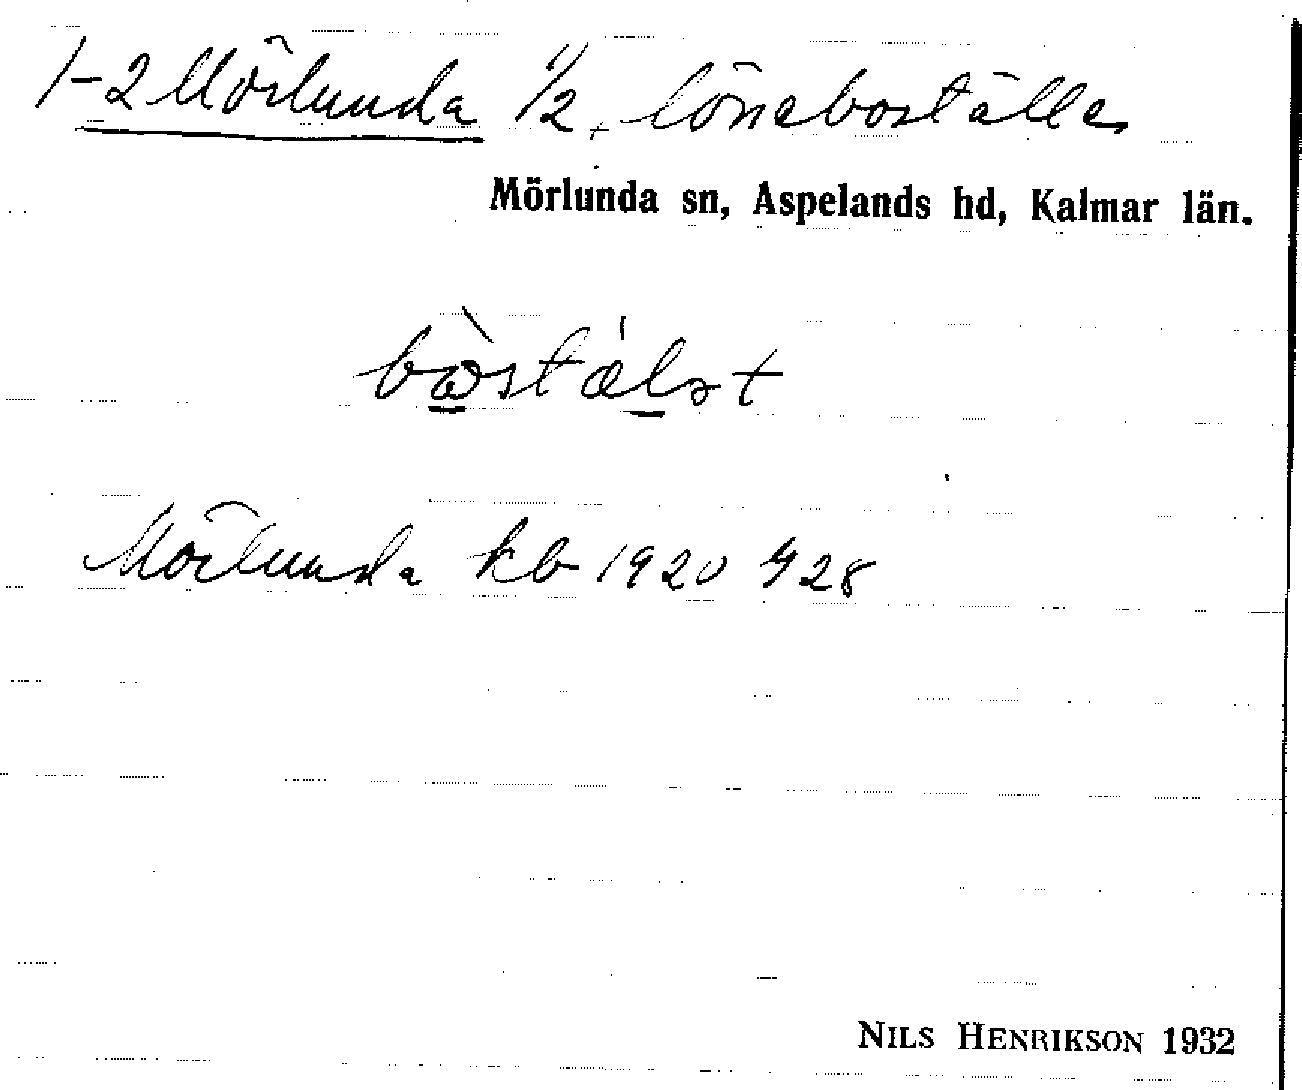 1-2 Mörlunda 1/2, löneboställe
Mörlunda sn, Aspelands hd, Kalmar län.
Mörlunda kb 1920 s 28
NILS HENRIKSON 1932